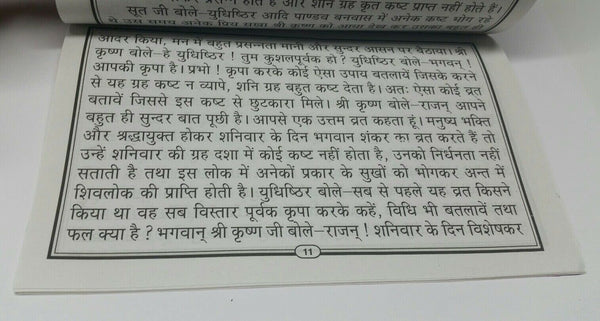 प्रसन्न होते हैं और शनि ग्रह कृत कष्ट प्राप्त नहीं होते हैं।
सूत जी बोले–युधिष्ठिर आदि पाण्डव बनवास में अनेक कष्ट भोग रहे
थे उस समय अनेक प्रिय सखा श्री कृष्ण को आया देख कर उसका बहुत ही
आदर किया, मन में बहुत प्रसन्नता मानी और सुन्दर आसन पर बैठाया। श्री
कृष्ण बोले–हे युधिष्ठिर ! तुम कुशलपूर्वक हो? युधिष्ठिर बोले–भगवन्!
आपकी कृपा है। प्रभो! कृपा करके कोई ऐसा उपाय बतलावें जिसके करने
से यह ग्रह कष्ट न व्यापे, शनि ग्रह बहुत कष्ट देता है। अतः ऐसा कोई व्रत
बतावें जिससे इस कष्ट से छुटकारा मिले। श्री कृष्ण बोले–राजन् आपने
बहुत ही सुन्दर बात पूछी है। आपसे एक उत्तम व्रत कहता हूं। मनुष्य भक्ति
और श्रद्धायुक्त होकर शनिवार के दिन भगवान शंकर का व्रत करते हैं तो
उन्हें शनिवार की ग्रह दशा में कोई कष्ट नहीं होता है, उनको निर्धनता नहीं
सताती है तथा इस लोक में अनेकों प्रकार के सुखों को भोगकर अन्त में
शिवलोक की प्राप्ति होती है। युधिष्ठिर बोले–सब से पहले यह व्रत किसने
किया था वह सब विस्तार पूर्वक कृपा करके कहें, विधि भी बतलावें तथा
फल क्या है ? भगवान् श्री कृष्ण जी बोले–राजन् ! शनिवार के दिन विशेषकर
11